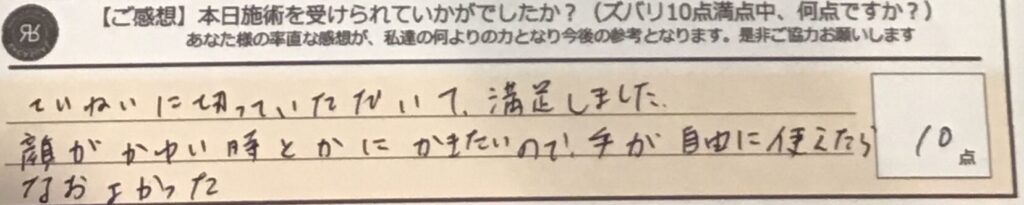 【ご感想】本日施術を受けられていかがでしたか？（ズバリ10点満点中、何点ですか？）
あなた様の率直な感想が、私達の何よりの力となり今後の参考となります。是非ご協力お願いします
ていねいに切っていただいて、満足しました。
顔がかゆい時とかにかきたいので、手が自由に使えたら
なおよかった
10点